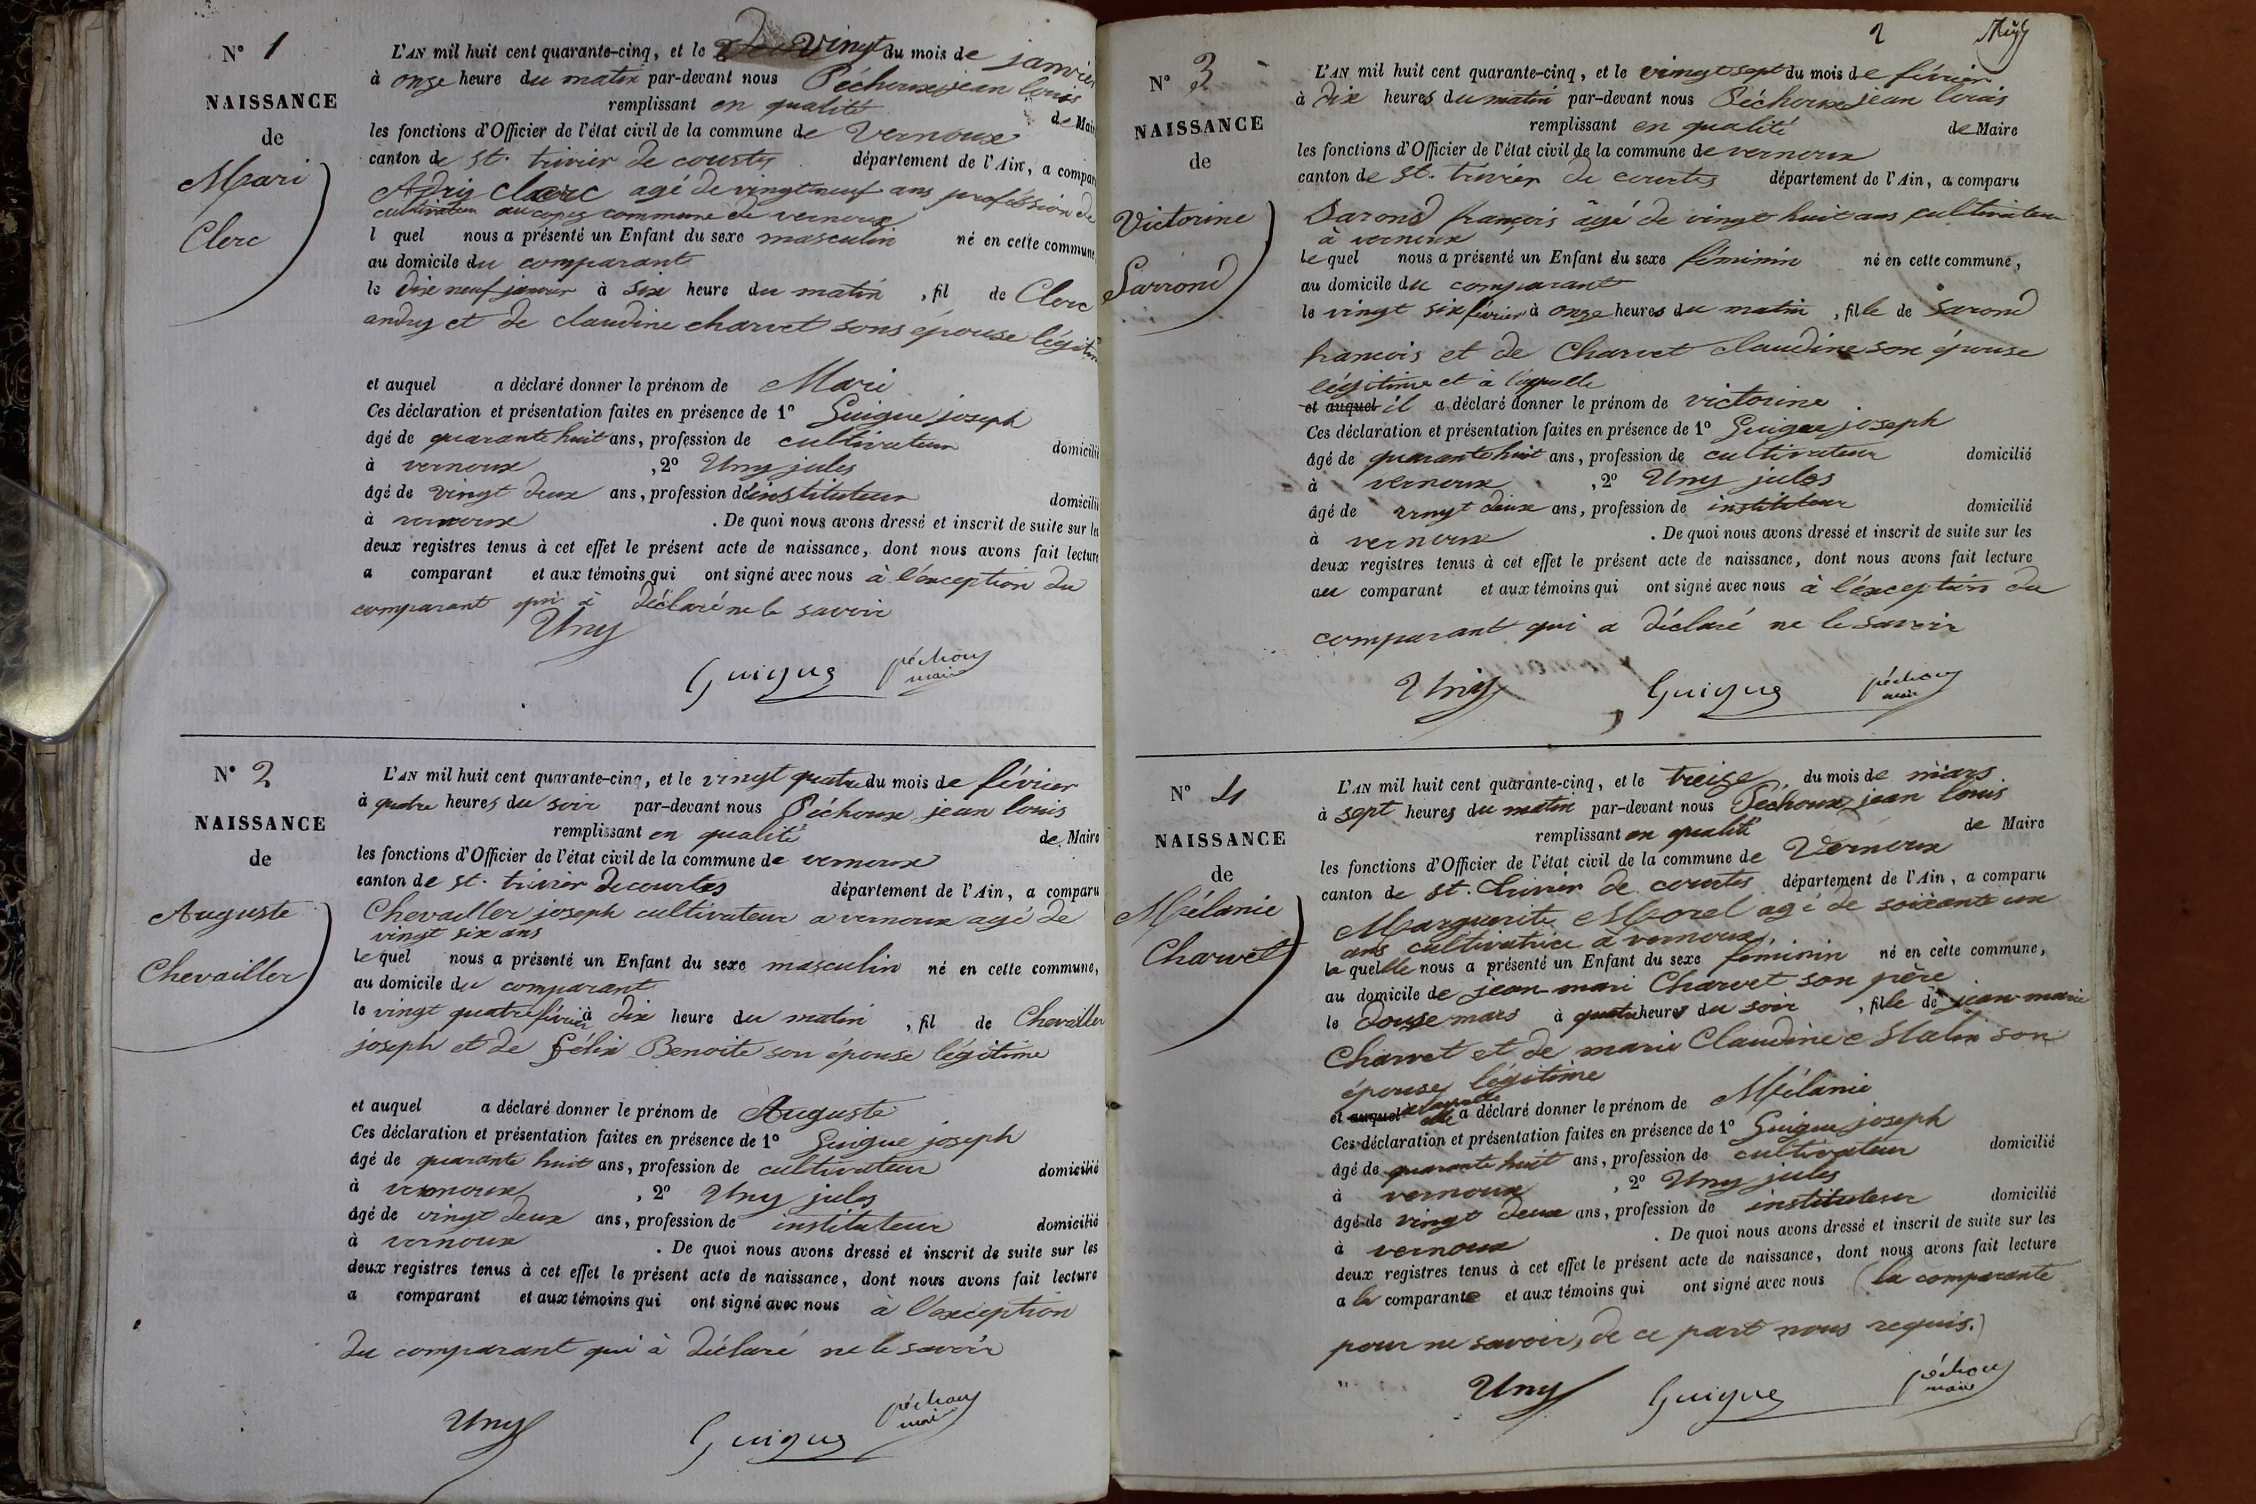 N° 1
NAISSANCE
de
Mari
Clerc
L'AN mil huit cent quarante-cinq, et le vingt du mois de janvier
à onze heure du matin par-devant nous Péchoux jean louis
remplissant en qualité de Mair
les fonctions d'Officier de l'état civil de la commune de Vernoux
canton de St. trivier de courtes département de l'Ain, a compar
Clerc agé de vingt neuf ans profession de
cultivateur commune de vernoux
l quel nous a présenté un Enfant du sexe masculin né en cette commune,
au domicile du comparant
le dix neuf janvier à six heure du matin, fil de Clerc
andry et de claudine charvet sons épouse légitim
et auquel a déclaré donner le prénom de Mari
Ces déclaration et présentation faites en présence de 1° Guigue joseph
âgé de quarante huit ans, profession de cultivateur domicilié
à vernoux, 2° Uny jules
âgé de vingt deux ans, profession de instituteur domicilié
à vernoux. De quoi nous avons dressé et inscrit de suite sur les
deux registres tenus à cet effet le présent acte de naissance, dont nous avons fait lecture
a comparant et aux témoins qui ont signé avec nous à l'exception du
comparant qui à déclaré ne le savoir
Uny
Guigue péchoux
maire
N° 2
NAISSANCE
de
Auguste
Chevailler
L'AN mil huit cent quarante-cinq, et le vingt quatre du mois de février
à quatre heures du soir par-devant nous Péchoux jean louis
remplissant en qualité de Maire
les fonctions d'Officier de l'état civil de la commune de vernoux
canton de st. trivier de courtes département de l'Ain, a comparu
Chevailler joseph cultivateur a vernoux agé de
vingt six ans
le quel nous a présenté un Enfant du sexe masculin né en cette commune,
au domicile du comparant
le vingt quatre février à dix heure du matin, fil de Chevailler
joseph et de félix Benoite son épouse légitime
et auquel a déclaré donner le prénom de Auguste
Ces déclaration et présentation faites en présence de 1° Guigue joseph
âgé de quarante huit ans, profession de cultivateur domicilié
à vernoux, 2° Uny jules
âgé de vingt deux ans, profession de instituteur domicilié
à vernoux. De quoi nous avons dressé et inscrit de suite sur les
deux registres tenus à cet effet le présent acte de naissance, dont nous avons fait lecture
a comparant et aux témoins qui ont signé avec nous à l'exception
du comparant qui à déclaré ne le savoir
Uny Guigue péchoux
maire
2
N° 3
NAISSANCE
de
Victorine
Sarrond
L'AN mil huit cent quarante-cinq, et le vingt sept du mois de février
à dix heures du matin par-devant nous Péchoux jean louis
remplissant en qualité de Maire
les fonctions d'Officier de l'état civil de la commune de vernoux
canton de St. trivier de courtes département de l'Ain, a comparu
Sarond françois âgé de vingt huit ans cultivateur
à vernoux
le quel nous a présenté un Enfant du sexe féminin né en cette commune,
au domicile du comparant
le vingt six février à onze heures du matin, fille de Sarond
francois et de Charvet claudine son épouse
légitime et à laquelle
et auquel il a déclaré donner le prénom de victorine
Ces déclaration et présentation faites en présence de 1° Guigue joseph
âgé de quarante huit ans, profession de cultivateur domicilié
à vernoux, 2° Uny jules
âgé de vingt deux ans, profession de instituteur domicilié
à vernoux. De quoi nous avons dressé et inscrit de suite sur les
deux registres tenus à cet effet le présent acte de naissance, dont nous avons fait lecture
au comparant et aux témoins qui ont signé avec nous à l'exception du
comparant qui a déclaré ne le savoir
Uny Guigue péchoux
maire
N° 4
NAISSANCE
de
Mélanie
Charvet
L'AN mil huit cent quarante-cinq, et le treize du mois de mars
à sept heures du matin par-devant nous Péchoux jean louis
remplissant en qualité de Maire
les fonctions d'Officier de l'état civil de la commune de Vernoux
canton de St. Trivier de courtes département de l'Ain, a comparu
Marguerite Morel agé de soixante un
ans cultivatrice à vernoux
la quelle nous a présenté un Enfant du sexe féminin né en cette commune,
au domicile de jean-mari Charvet son père
le douze mars à quatre heures du soir, fille de jean-marie
Charvet et de marie Claudine Malin son
épouse légitime
et auquel a laquelle elle a déclaré donner le prénom de Mélanie
Ces déclaration et présentation faites en présence de 1° Guigue joseph
âgé de quarante huit ans, profession de cultivateur domicilié
à vernoux, 2° Uny jules
âgé de vingt deux ans, profession de instituteur domicilié
à vernoux. De quoi nous avons dressé et inscrit de suite sur les
deux registres tenus à cet effet le présent acte de naissance, dont nous avons fait lecture
a la comparante et aux témoins qui ont signé avec nous (la comparante
pour ne savoir, de ce part nous requis.)
Uny Guigue péchoux
maire